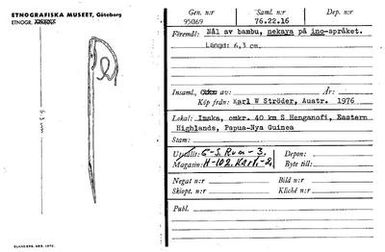 ETNOGRAFISKA MUSEET, Göteborg
Gen. n:r
95069
Saml. n:r
76.22.16
Dep. n:r
Föremål: Nål av bambu, nekaya på ino-språket.
Längd: 6,3 cm.
Insaml. av: År:
Köp från: Karl W Ströder, Austr. 1976
Lokal: Imaka, omkr. 40 km S Henganofi, Eastern
Highlands, Papua-Nya Guinea
Stam:
Utställt: G-S. Rum-3.
Magasin: H-102. Kart.-2.
Depon:
Byte till:
Negat n:r
Bild n:r
Skiopt. n:r
Kliché n:r
Publ.